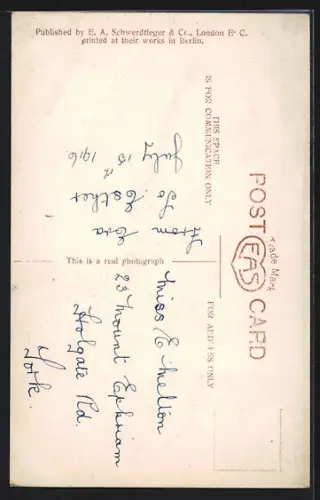 Published by E. A. Schwerdtfeger & Co., London E. C.
printed at their works in Berlin.
POST CARD
Trade Mark
EAS
THIS SPACE
IS FOR COMMUNICATION ONLY
FOR ADDRESS ONLY
This is a real photograph
From Eva
To Esther
July 15th 1916
Miss E Melton
23 Mount Ephriam
Holgate Rd.
York.